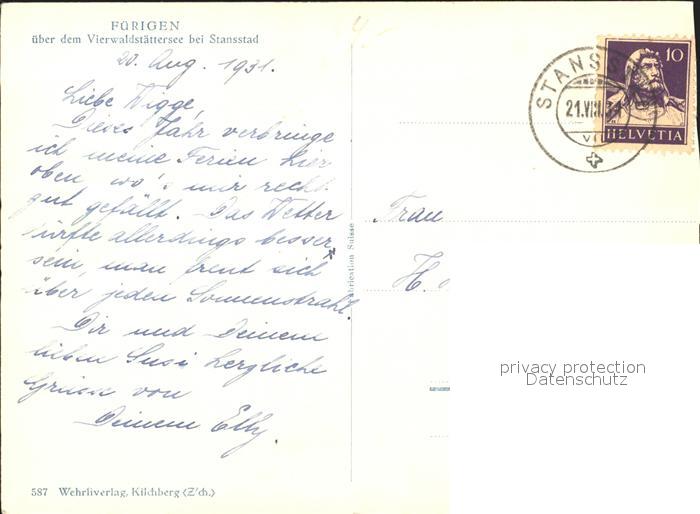 FÜRIGEN
über dem Vierwaldstättersee bei Stansstad
20. Aug. 1931.
Liebe Wigge,
Dieses Jahr verbringe
ich meine Ferien hier
oben, wo's mir recht
gut gefällt. Das Wetter
dürfte allerdings besser
sein, man freut sich
über jeden Sonnenstrahl.
Dir und Deinem
lieben Susi herzliche
Grüsse von
Deinem Elly.
587 Wehrliverlag, Kilchberg (Z'ch.)
Fabrication Suisse
STANSS
21.VIII.31
VII
10
HELVETIA
Frau
H.
privacy protection
Datenschutz